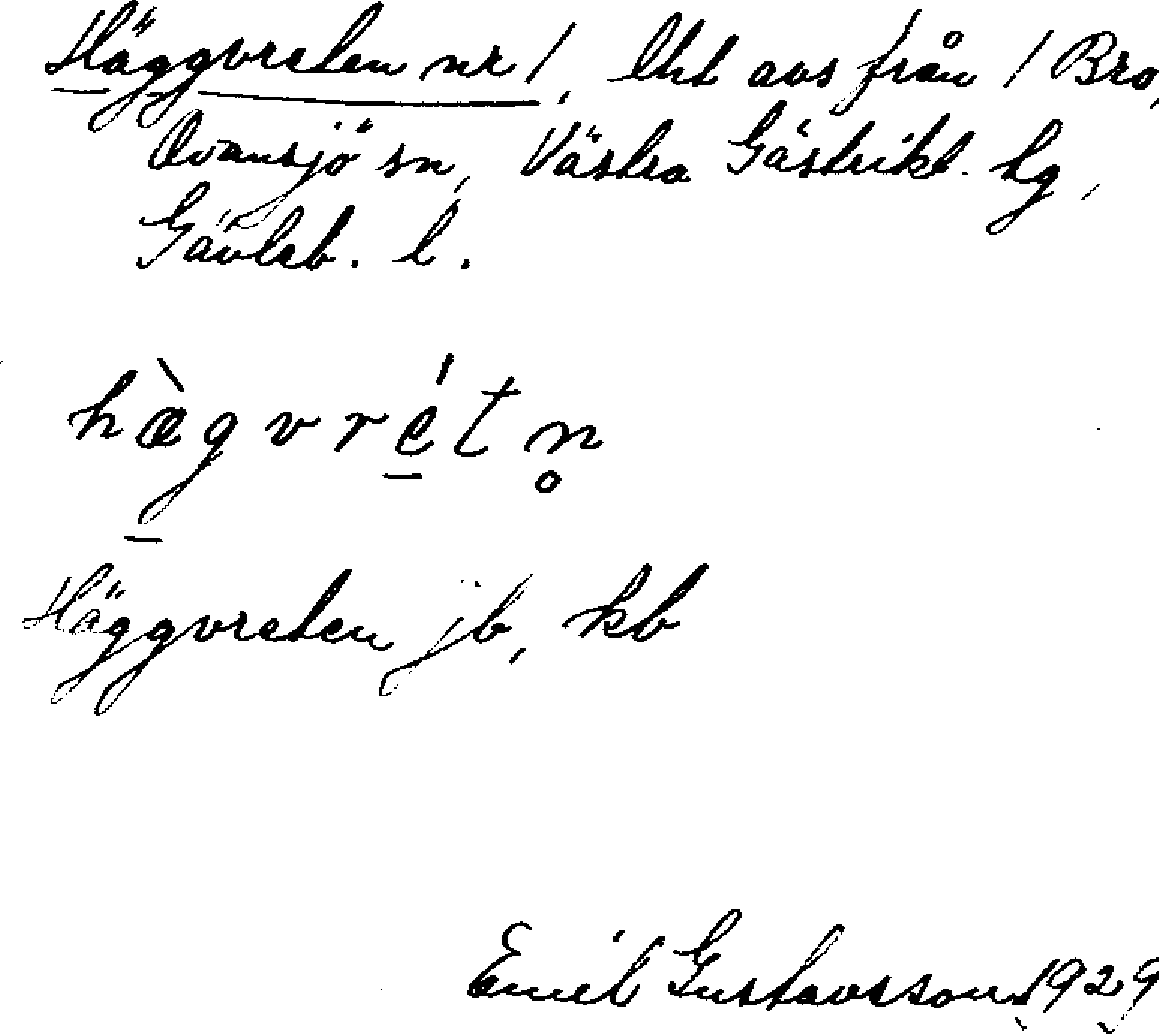 Häggvreten nr 1, lht avs från 1 Bro,
Ovansjö sn, Västra Gästrikl. tg,
Gävleb. l.
hæ̀gvrétn̥
Häggvreten jb, kb
Emil Gustavsson 1929